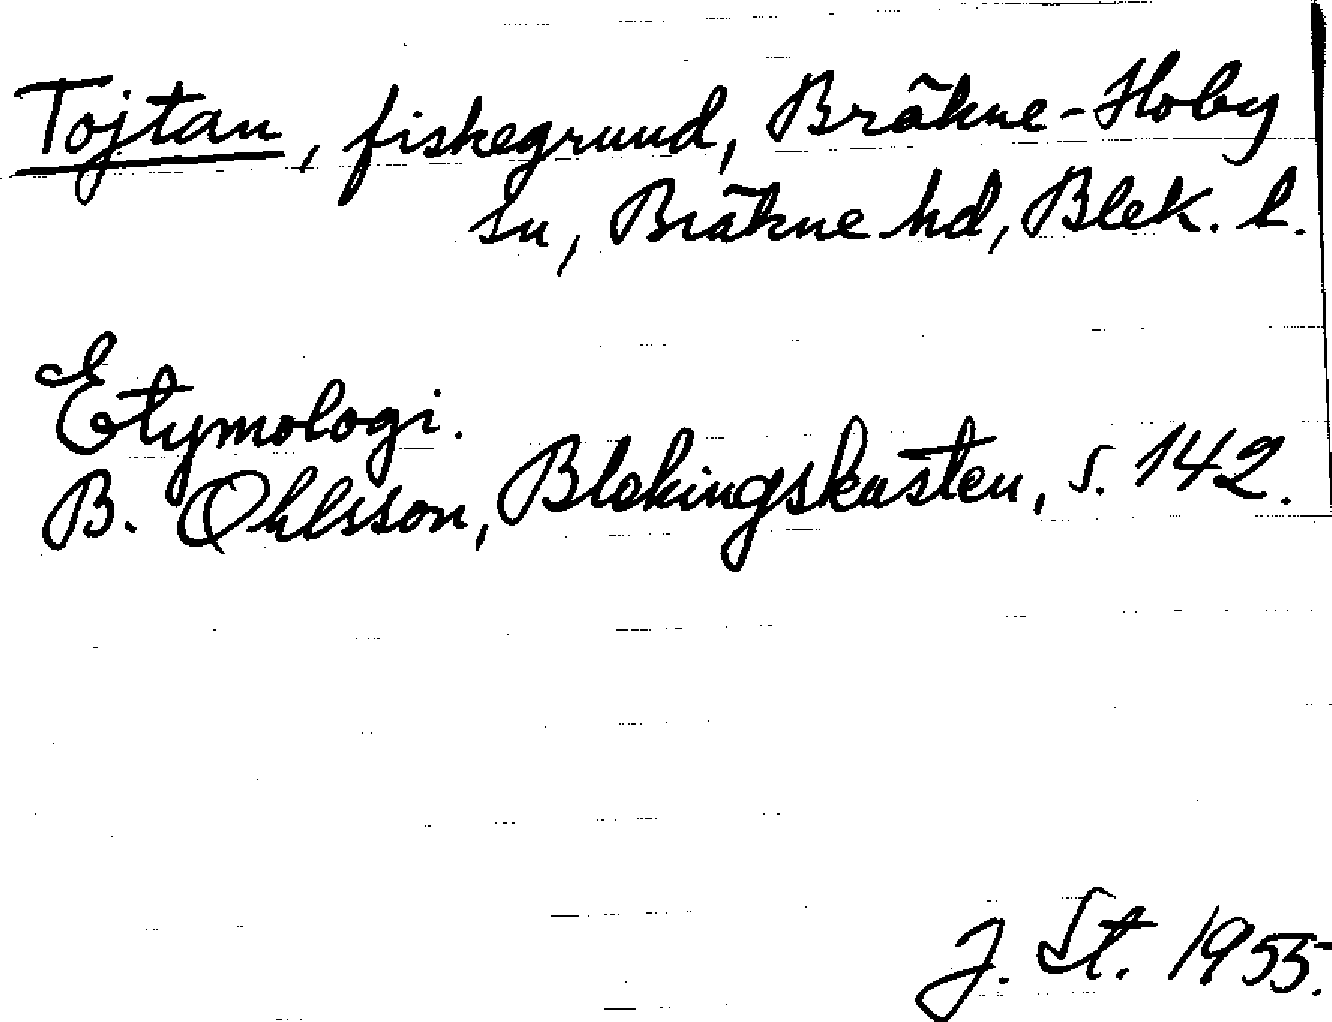 Tojtan, fiskegrund, Bräkne-Hoby
sn, Bräkne hd, Blek. l.
Etymologi.
B. Ohlsson, Blekingskusten, s. 142.
J. St. 1955.